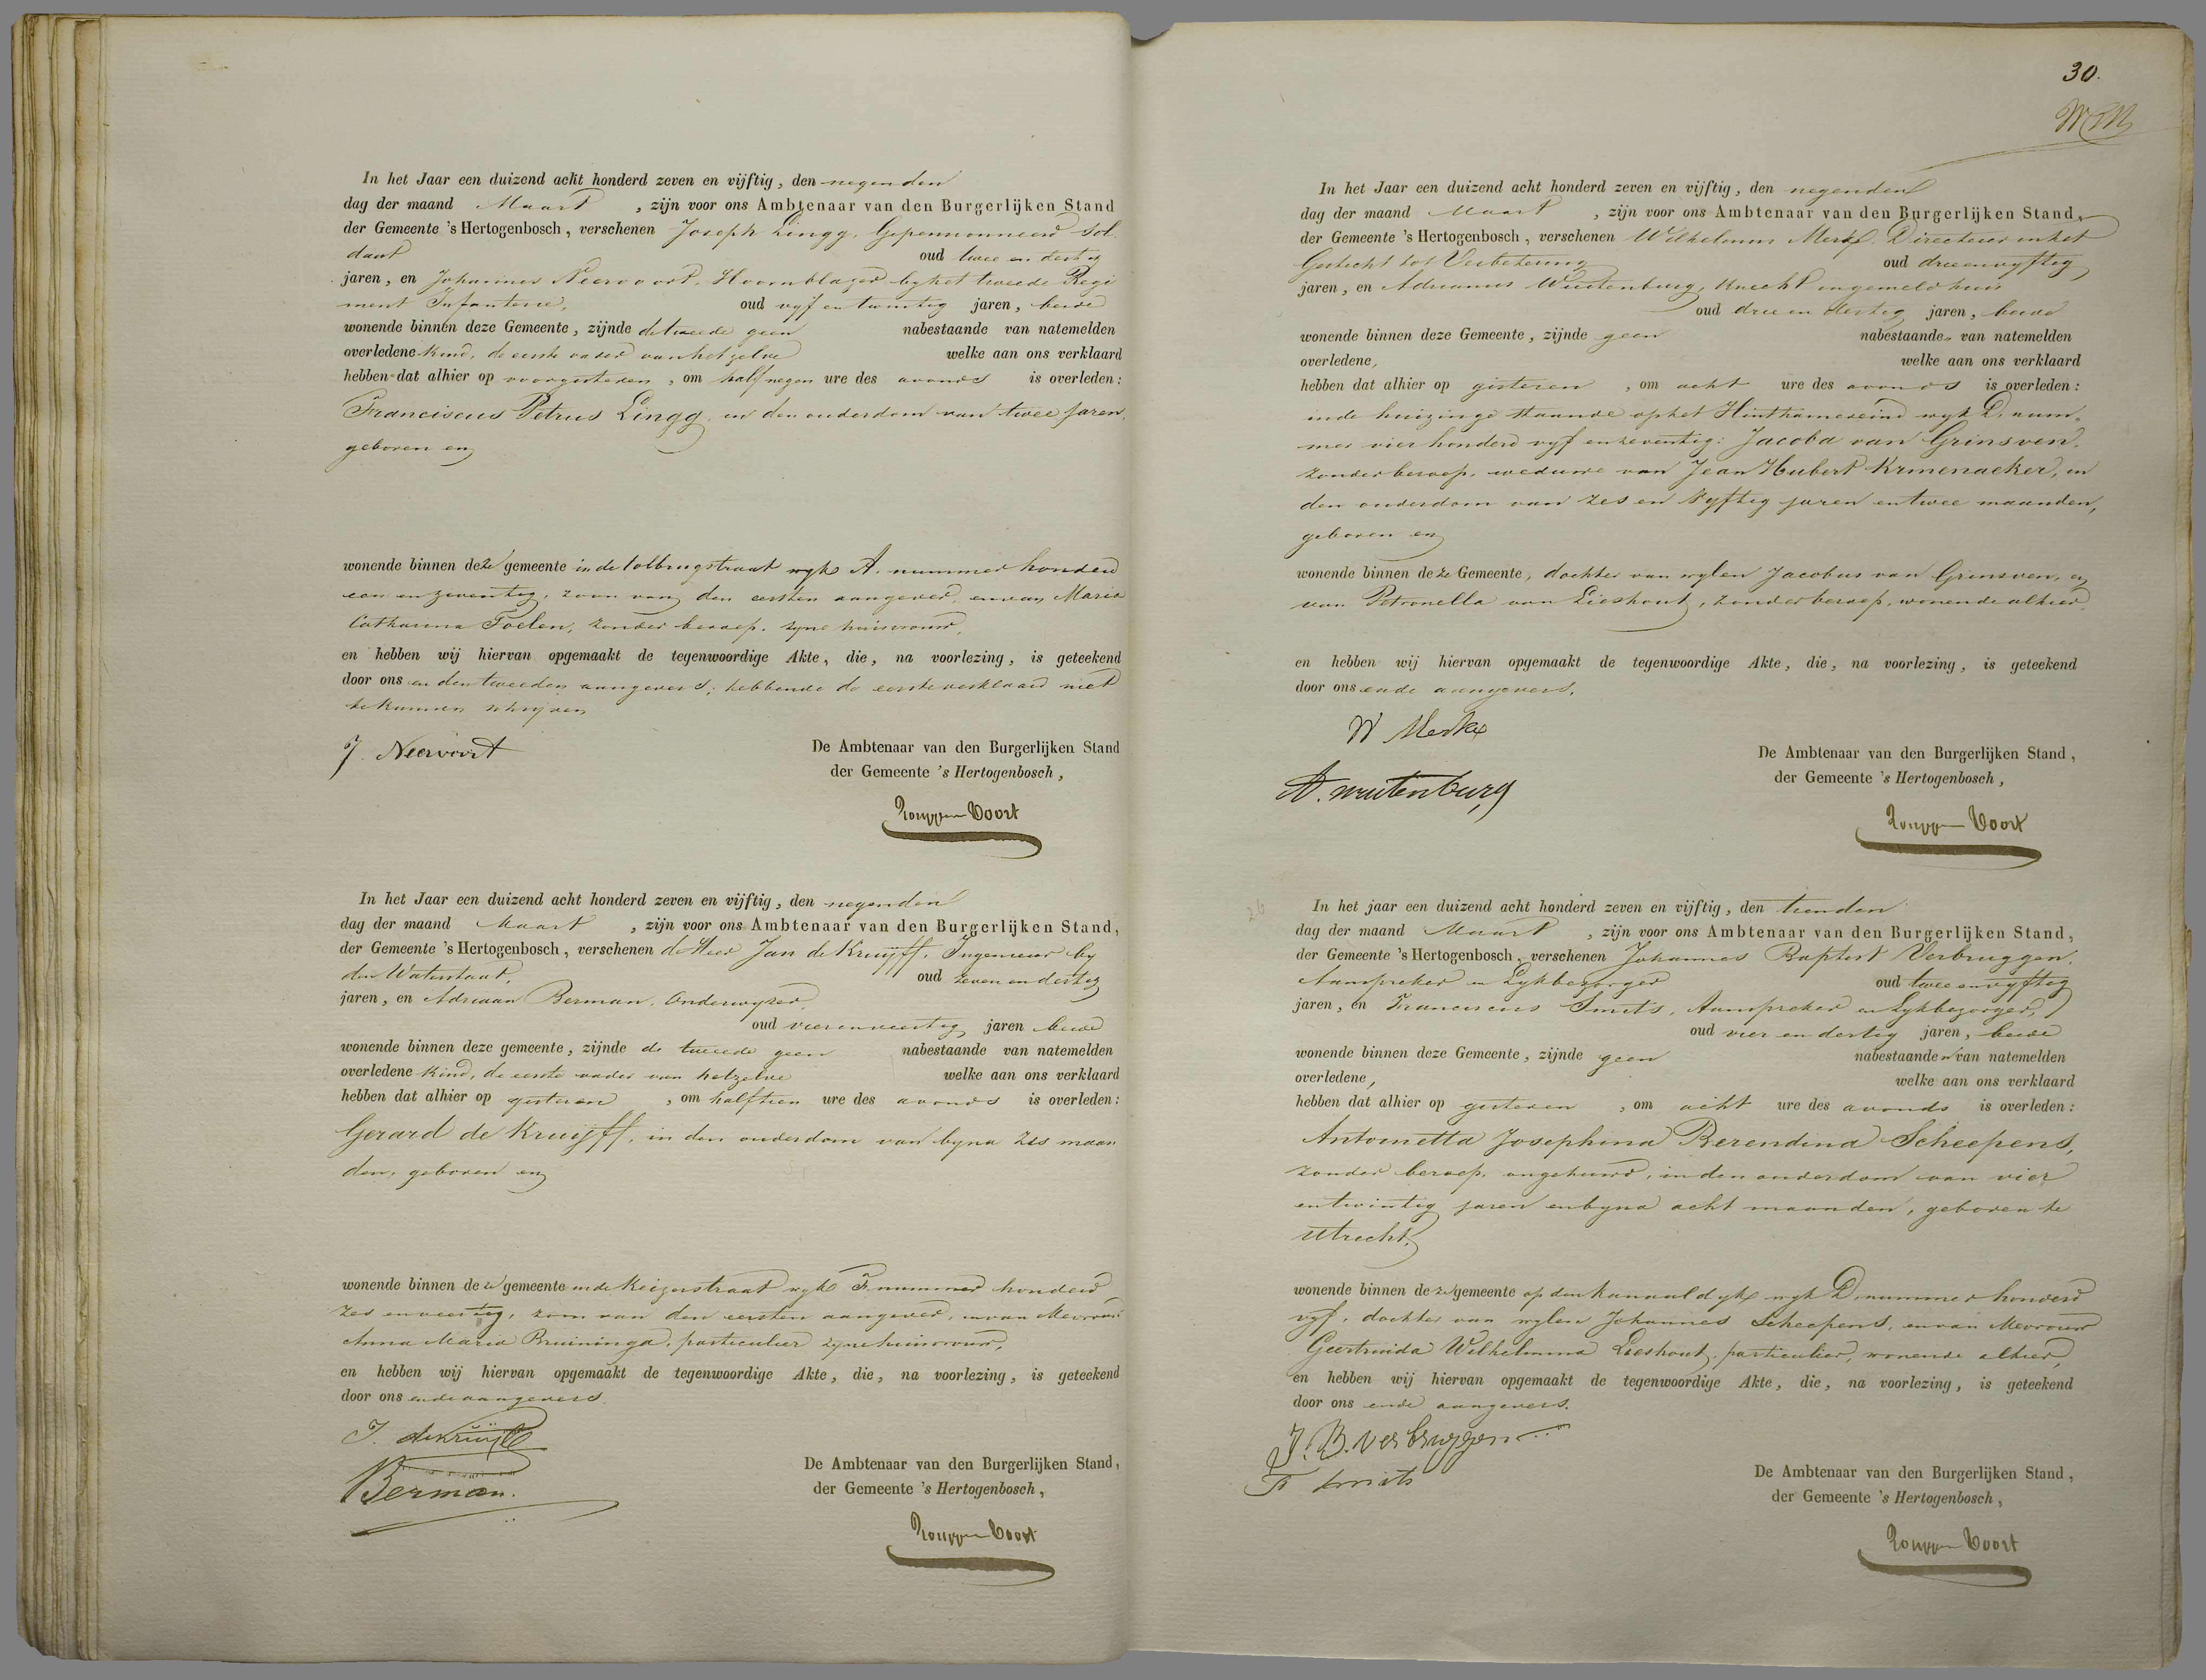 In het Jaar een duizend acht honderd zeven en vijftig, den negenden
dag der maand Maart , zijn voor ons Ambtenaar van den Burgerlijken Stand
der Gemeente 's Hertogenbosch, verschenen Joseph Lingg, Gepensionneerd Sol
daat oud twee en dertig
jaren, en Johannes Neervoort, Hoornblazer by het tweede Regi
ment Infanterie, oud vyf en twintig jaren, beide
wonende binnen deze Gemeente, zijnde de tweede geen nabestaande van natemelden
overledene kind, de eerste vader van hetzelve welke aan ons verklaard
hebben dat alhier op voorgisteren , om half negen ure des avonds is overleden:
Franciscus Petrus Lingg, in den ouderdom van twee jaren,
geboren en
wonende binnen deze gemeente in de tolbrugstraat wyk A. nummer honderd
een en zeventig, zoon van den eersten aangever, en van Maria
Catharina Foelen, zonder beroep, zyne huisvrouw,
en hebben wij hiervan opgemaakt de tegenwoordige Akte, die, na voorlezing, is geteekend
door ons en den tweeden aangever, hebbende de eerste verklaard niet
te kunnen schryven
J. Neervoort
De Ambtenaar van den Burgerlijken Stand
der Gemeente 's Hertogenbosch,
Voort
In het Jaar een duizend acht honderd zeven en vijftig, den negenden
dag der maand Maart , zijn voor ons Ambtenaar van den Burgerlijken Stand,
der Gemeente 's Hertogenbosch, verschenen de Heer Jan de Kruijff, Ingenieur by
den Waterstaat, oud zeven en dertig
jaren, en Adriaan Berman, Onderwyzer,
oud vier en veertig jaren beide
wonende binnen deze gemeente, zijnde de tweede geen nabestaande van natemelden
overledene kind, de eerste vader van hetzelve welke aan ons verklaard
hebben dat alhier op gisteren , om half tien ure des avonds is overleden:
Gerard de Kruijff, in den ouderdom van byna zes maan
den, geboren en
wonende binnen deze gemeente in de Keizerstraat wyk F nummer honderd
zes en veertig, zoon van den eersten aangever, en van Mevrouw
Anna Maria Bruininga, particulier zyne huisvrouw,
en hebben wij hiervan opgemaakt de tegenwoordige Akte, die, na voorlezing, is geteekend
door ons en de aangevers.
J. de Kruijff
Berman.
De Ambtenaar van den Burgerlijken Stand,
der Gemeente 's Hertogenbosch,
Voort
30.
In het Jaar een duizend acht honderd zeven en vijftig, den negenden
dag der maand Maart , zijn voor ons Ambtenaar van den Burgerlijken Stand,
der Gemeente 's Hertogenbosch, verschenen Wilhelmus Merkx, Directeur in het
Gesticht tot Verbetering oud drie en vyftig
jaren, en Adrianus Wuitenburg, knecht in gemeld huis
oud drie en dertig jaren, beide
wonende binnen deze Gemeente, zijnde geen nabestaande van natemelden
overledene, welke aan ons verklaard
hebben dat alhier op gisteren , om acht ure des avonds is overleden:
in de huizinge staande op het Hinthamereind wyk D. num
mer vier honderd vyf en zeventig: Jacoba van Grinsven,
zonder beroep, weduwe van Jean Hubert Krmenacker, in
den ouderdom van zes en vyftig jaren en twee maanden,
geboren en
wonende binnen deze Gemeente, dochter van wylen Jacobus van Grinsven, en
van Petronella van Lieshout, zonder beroep, wonende alhier,
en hebben wij hiervan opgemaakt de tegenwoordige Akte, die, na voorlezing, is geteekend
door ons en de aangevers.
W Merkx
A. wuitenburg
De Ambtenaar van den Burgerlijken Stand,
der Gemeente 's Hertogenbosch,
Voort
26
In het jaar een duizend acht honderd zeven en vijftig, den tienden
dag der maand Maart , zijn voor ons Ambtenaar van den Burgerlijken Stand,
der Gemeente 's Hertogenbosch, verschenen Johannes Baptist Verbruggen,
Aanspreker en Lykbezorger oud twee en vyftig
jaren, en Franciscus Smits, Aanspreker en Lykbezorger,
oud vier en dertig jaren, beide
wonende binnen deze Gemeente, zijnde geen nabestaanden van natemelden
overledene, welke aan ons verklaard
hebben dat alhier op gisteren , om acht ure des avonds is overleden:
Antoinetta Josephina Berendina Scheepens,
zonder beroep, ongehuwd, in den ouderdom van vier
en twintig jaren en byna acht maanden, geboren te
Utrecht,
wonende binnen deze gemeente op den kanaaldyk wyk D. nummer honderd
vyf, dochter van wylen Johannes Scheepens, en van Mevrouw
Geertruida Wilhelmina Lieshout, particulier, wonende alhier,
en hebben wij hiervan opgemaakt de tegenwoordige Akte, die, na voorlezing, is geteekend
door ons en de aangevers.
J. B. Verbruggen
F Smits
De Ambtenaar van den Burgerlijken Stand,
der Gemeente 's Hertogenbosch,
Voort